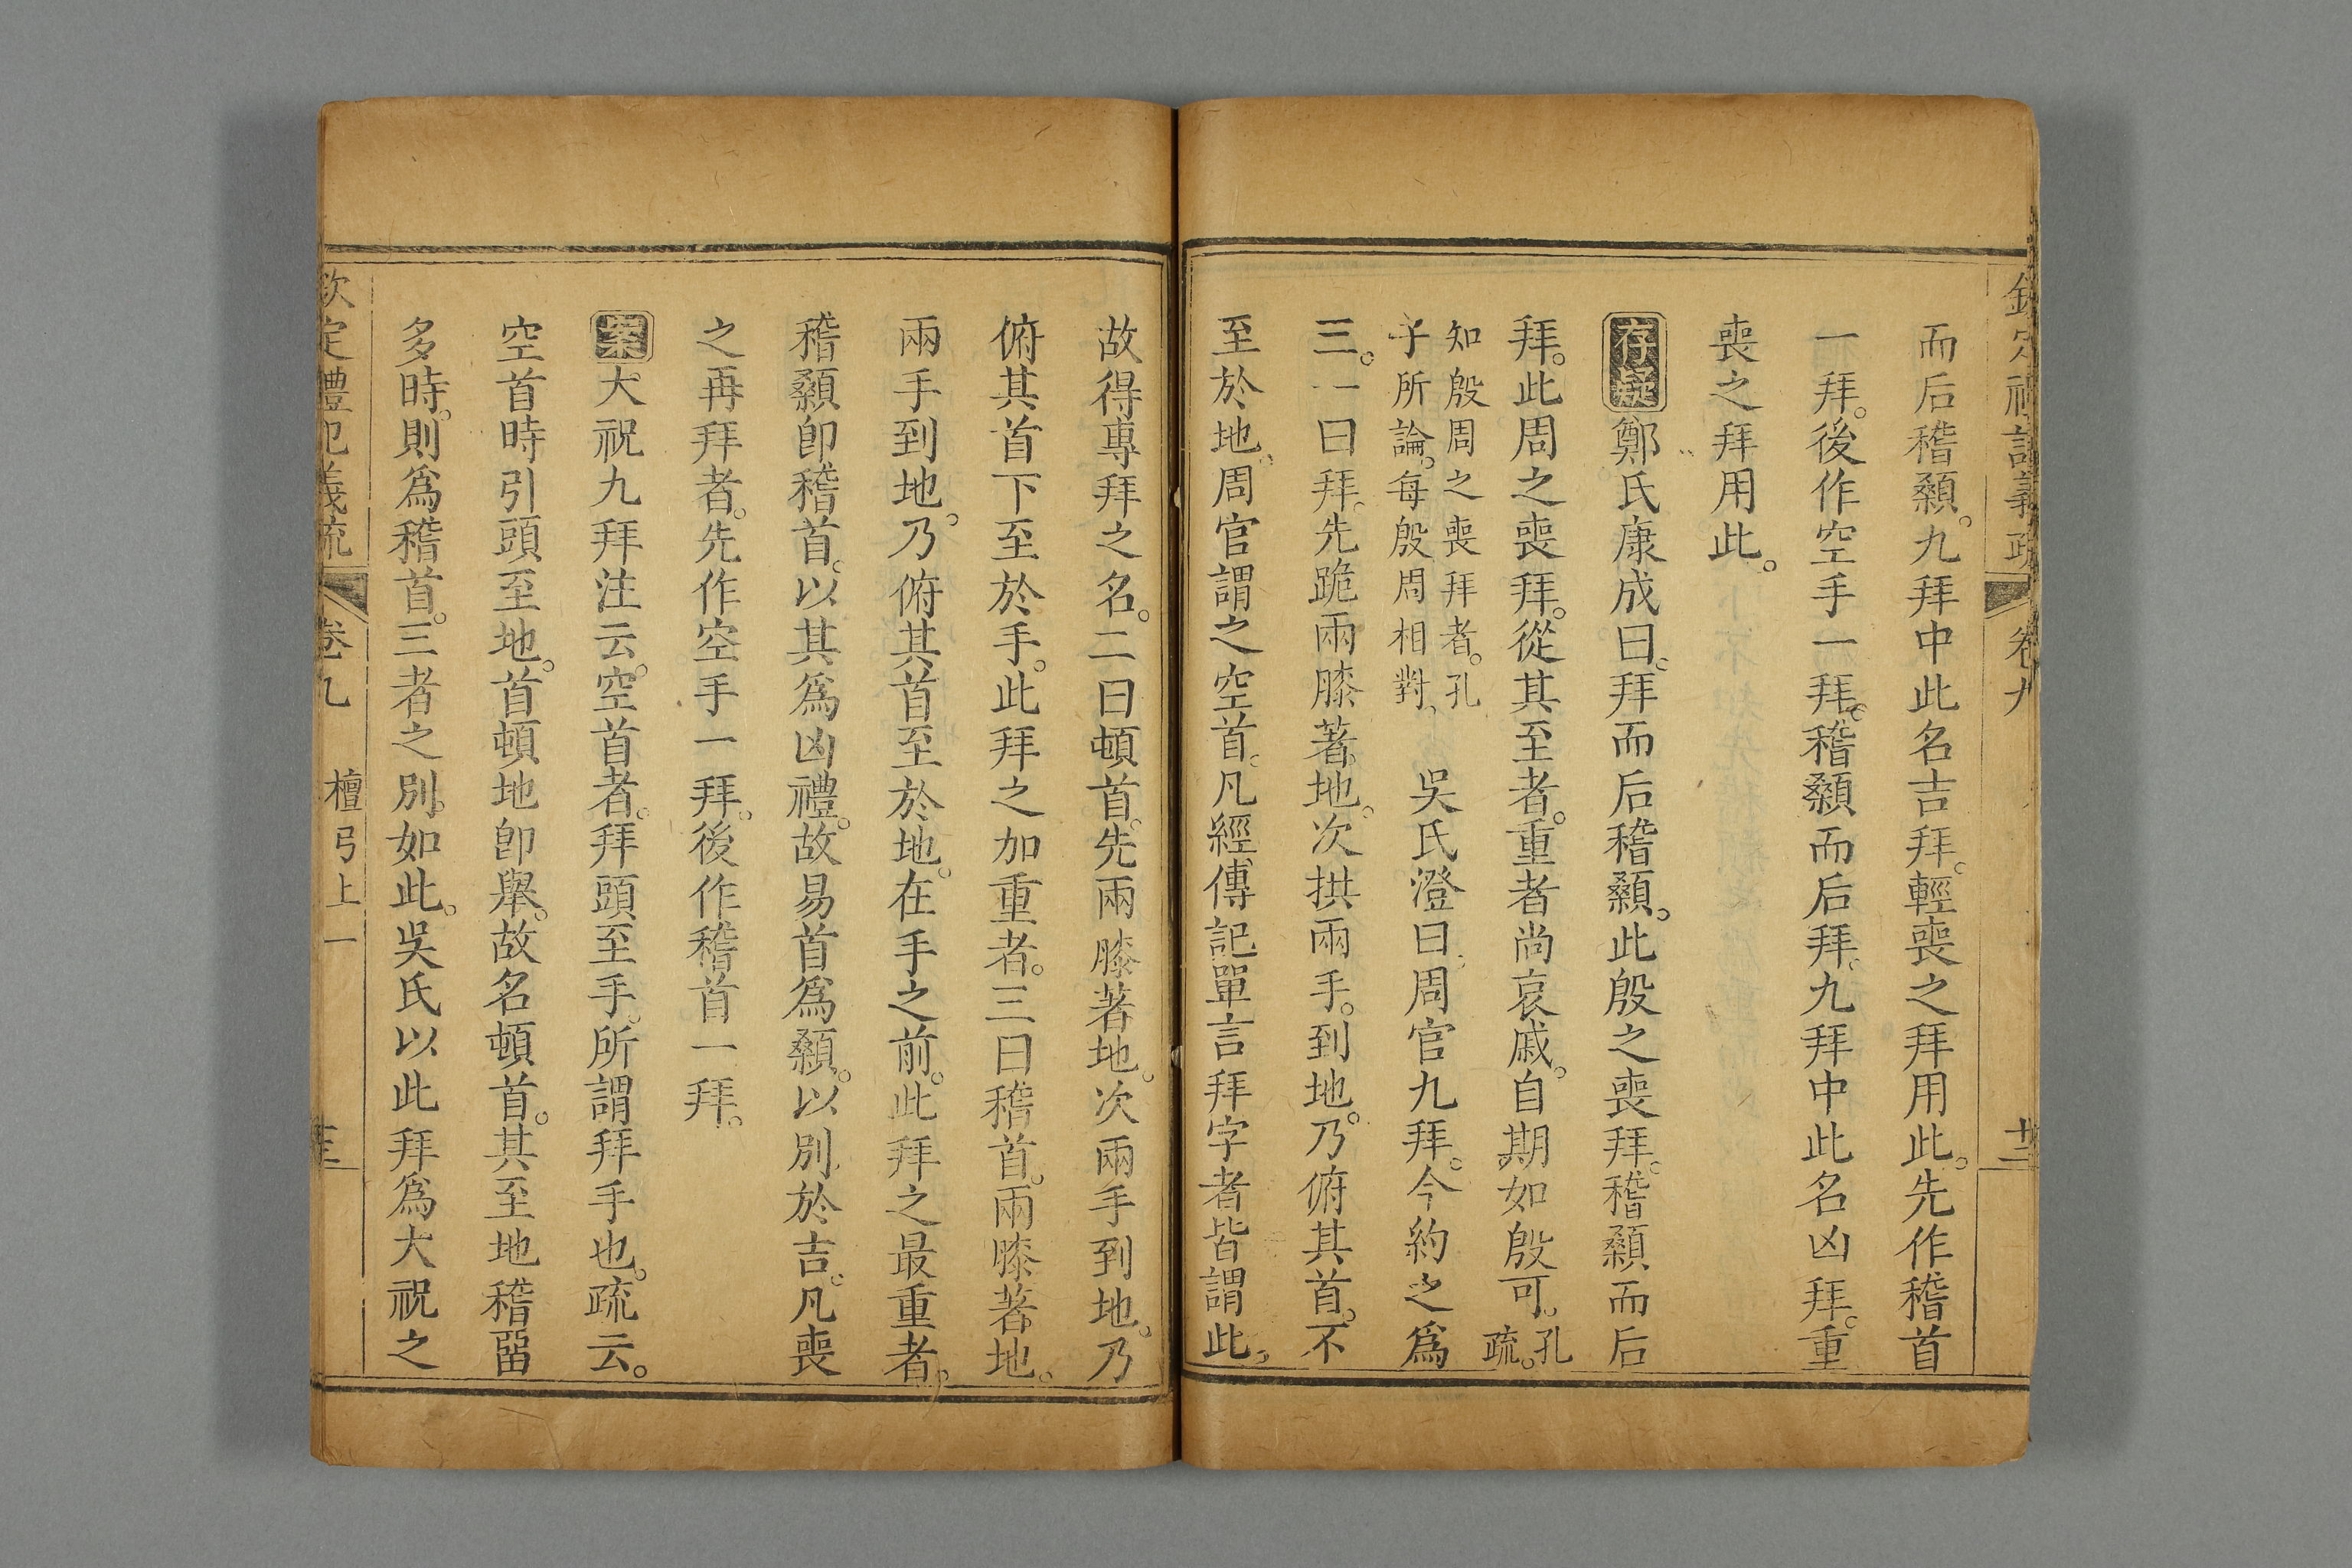 欽定禮記義疏 卷九 十二
而后稽顙。九拜中此名吉拜。輕喪之拜用此。先作稽首
一拜。後作空手一拜。稽顙而后拜。九拜中此名凶拜。重
喪之拜用此。
存疑鄭氏康成曰。拜而后稽顙。此殷之喪拜。稽顙而后
拜。此周之喪拜。從其至者。重者尚哀戚。自期如殷可。孔
疏。
知殷周之喪拜者。孔
子所論。每殷周相對、
吳氏澄曰。周官九拜。今約之爲
三。一曰拜。先跪兩膝著地。次拱兩手。到地。乃俯其首。不
至於地。周官謂之空首。凡經傳記單言拜字者皆謂此。
故得專拜之名。二曰頓首。先兩膝著地。次兩手到地。乃
俯其首下至於手。此拜之加重者。三曰稽首。兩膝著地。
兩手到地。乃俯其首至於地。在手之前。此拜之最重者。
稽顙卽稽首。以其爲凶禮。故易首爲顙。以別於吉。凡喪
之再拜者。先作空手一拜。後作稽首一拜。
案大祝九拜注云。空首者。拜頭至手。所謂拜手也。疏云。
空首時引頭至地。首頓地卽舉。故名頓首。其至地稽畱
多時。則爲稽首。三者之別。如此。吳氏以此拜爲大祝之
欽定禮記義疏 卷九 檀弓上一